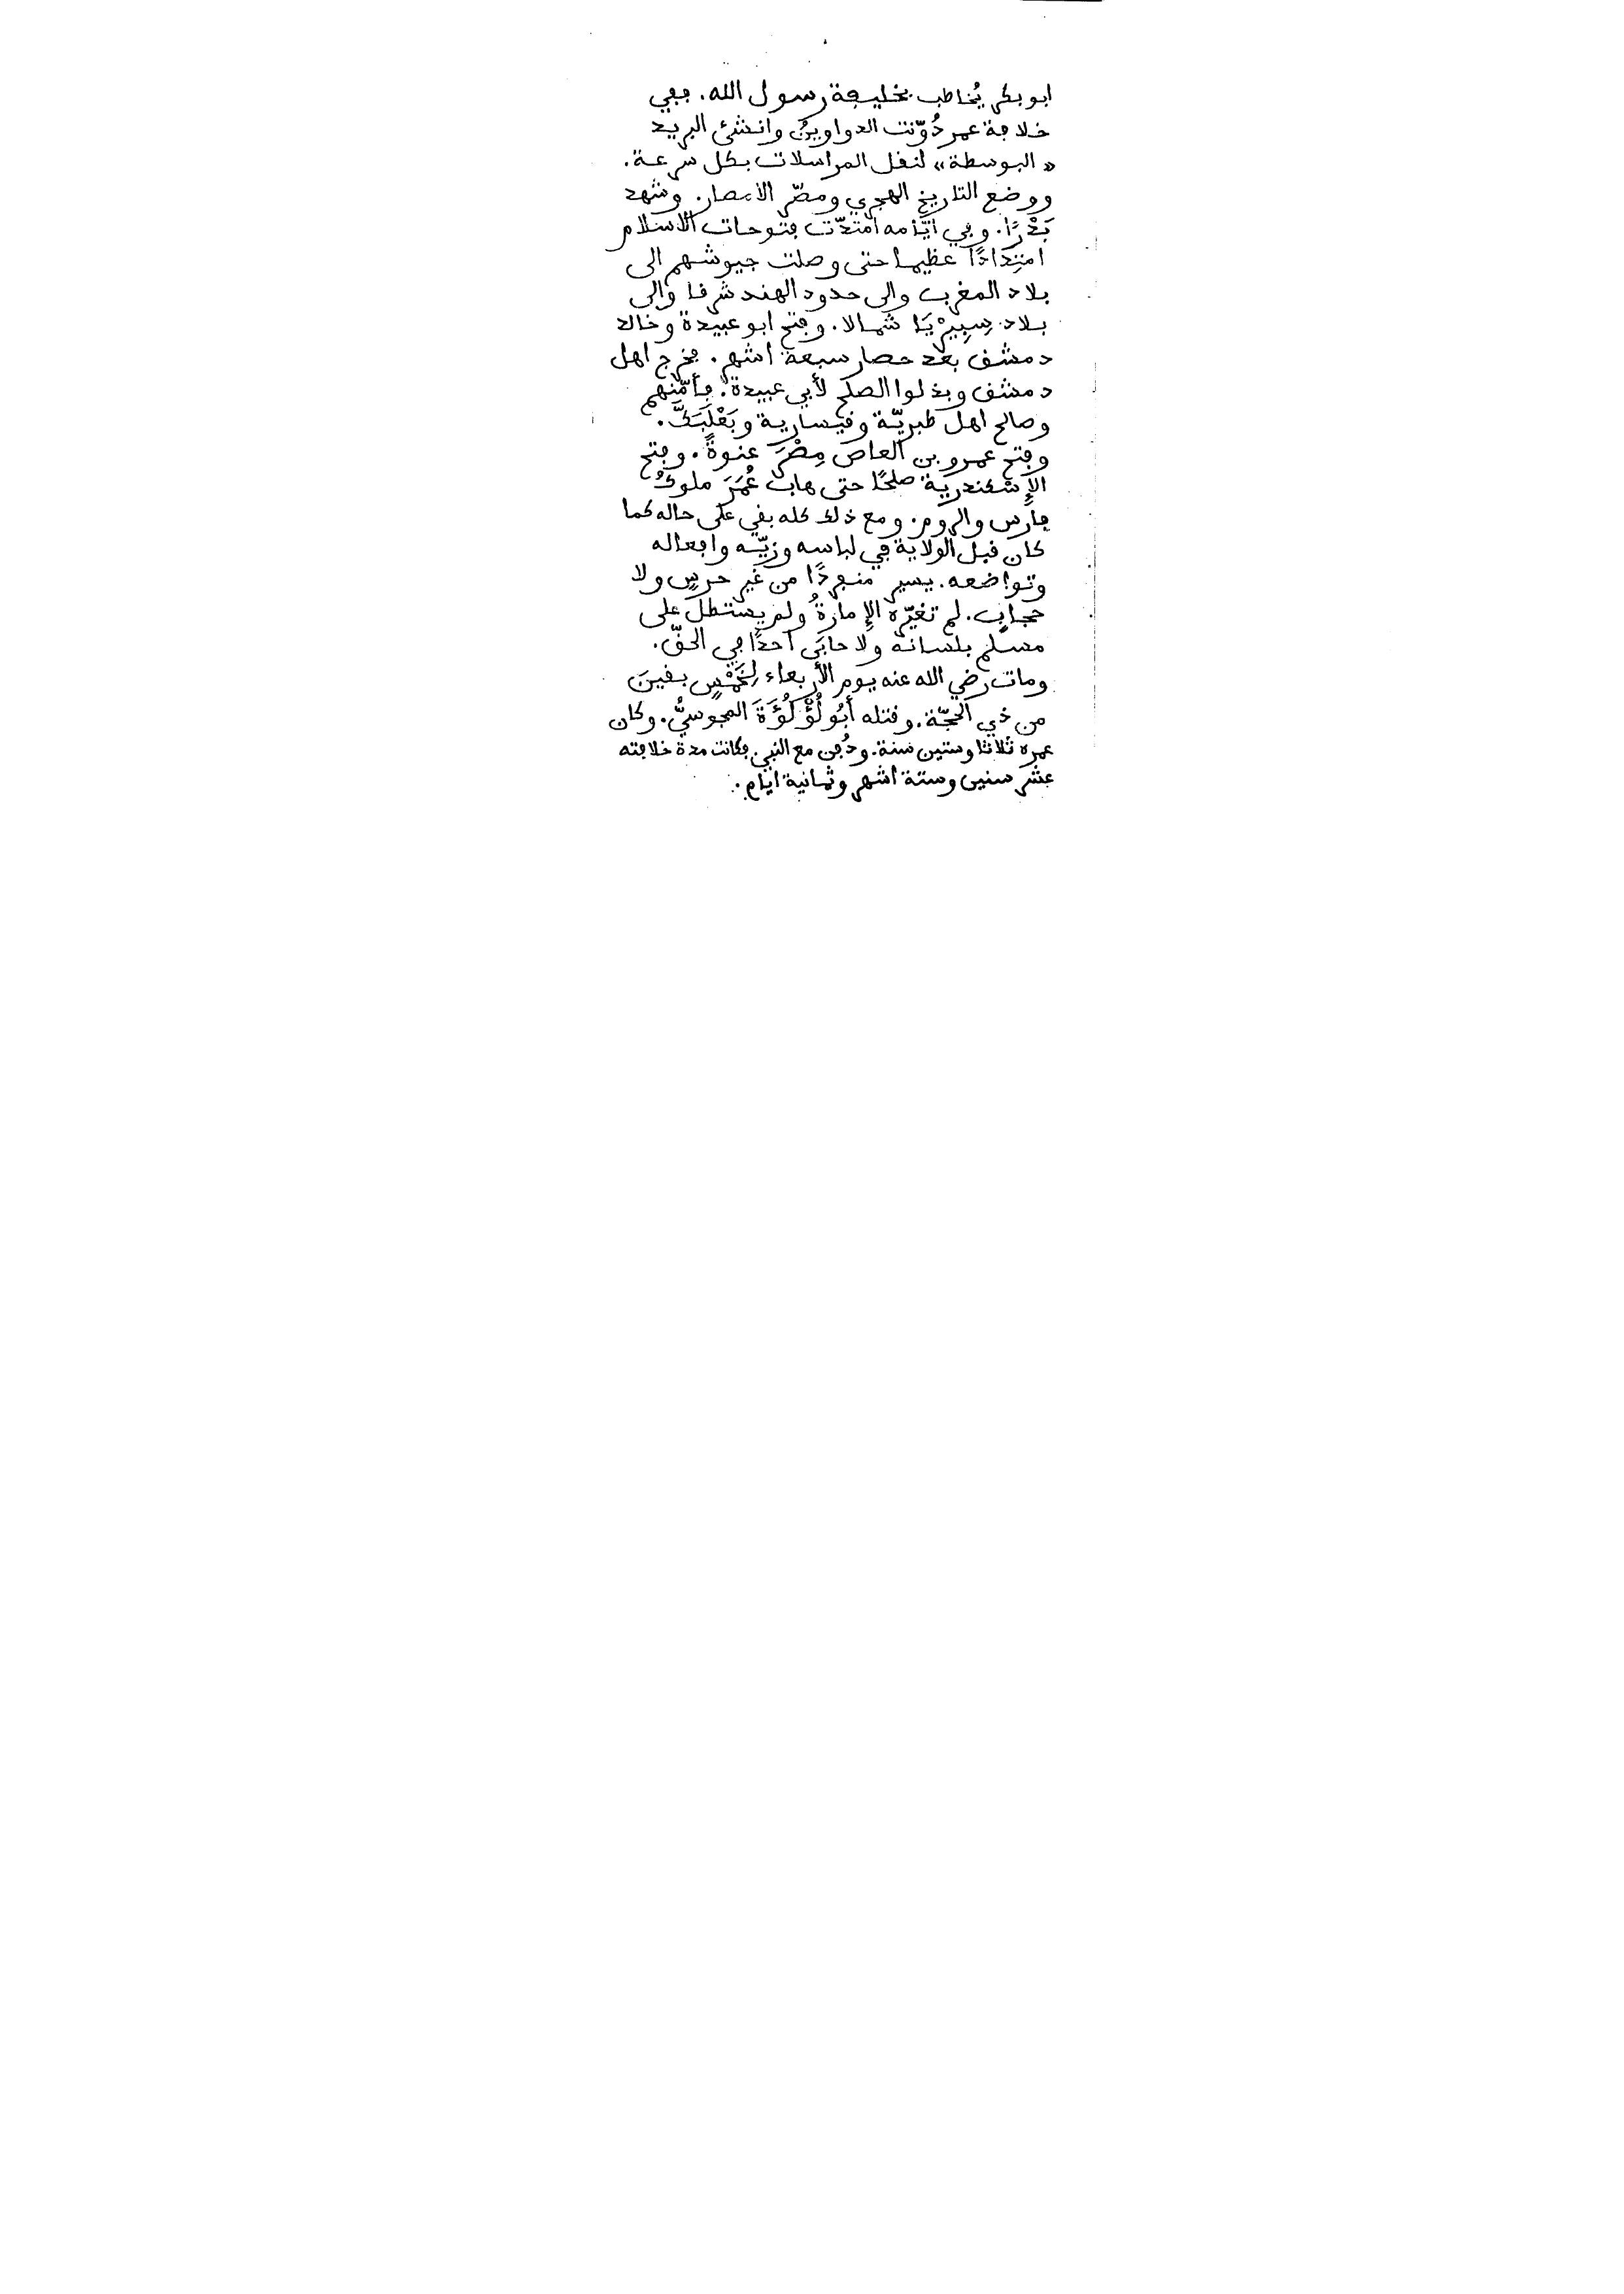 ابو بكر يُخاطب بخليفة رسول الله. ففي
خلافة عمر دُوّنت الدواوينُ وانشئ البريد
«البوسطة» لنقل المراسلات بكل سرعة.
ووضع التاريخ الهجري ومصّر الامصار. وشهد
بَدْرًا. وفي ايّامه امتدّت فتوحات الاسلام
امتِدَادًا عظيما حتى وصلت جيوشهم الى
بلاد المغرب والى حدود الهند شرقا والى
بلاد سِيبِيرْيَا شمالا. وفتح ابو عبيدة وخالد
دمشق بعد حصار سبعة اشهر. فخرج اهل
دمشق وبذلوا الصلح لأبي عبيدة. فأمّنهم
وصالح اهل طبريّة وقيسارية وبَعْلَبَكَّ.
وفتح عمرو بن العاص مِصْرَ عنوةً. وفتح
الإسكندرية صلحًا حتى هاب عُمَرَ ملوكُ
فارس والروم. ومع ذلك كله بقي على حاله كما
كان قبل الولاية في لباسه وزيّه وافعاله
وتواضعه. يسير منفردًا من غير حرسٍ ولا
حجابٍ. لم تغيّره الإمارةُ ولم يستطل على
مسلم بلسانه ولا حابَى احدًا في الحقّ.
ومات رضي الله عنه يوم الأربعاء لِخَمْسٍ بقينَ
من ذي الحجّة. وقتله أَبُو لُؤْلُؤَةَ المجوسيُّ. وكان
عمره ثلاثا وستين سنة. ودُفن مع النبي. فكانت مدة خلافته
عشر سنين وستة اشهر وثمانية ايام.